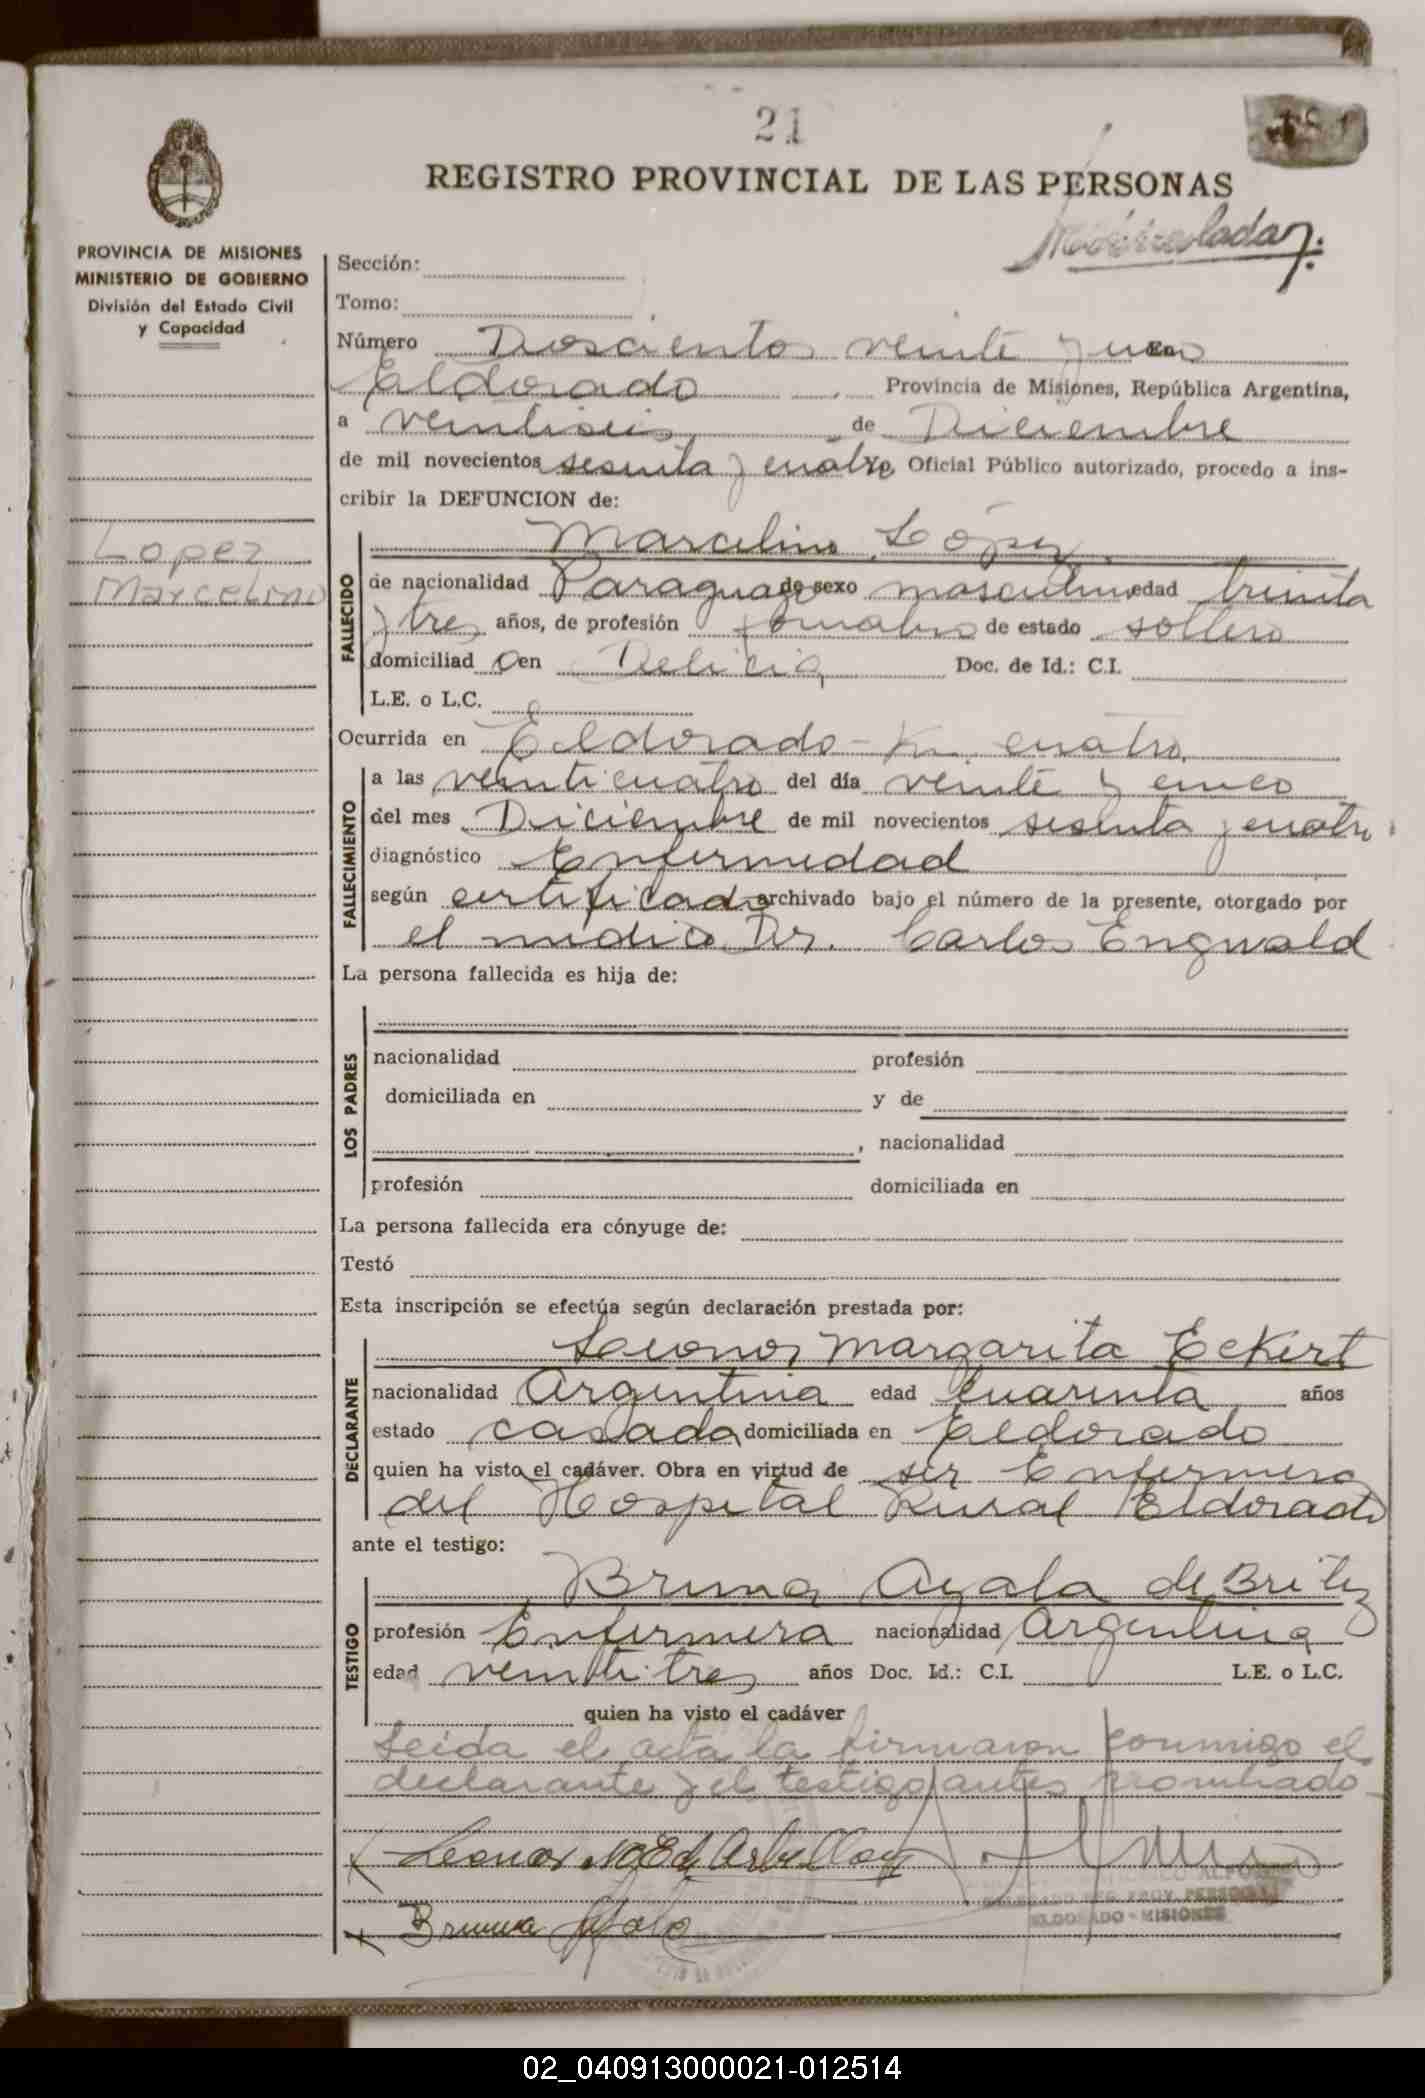 21
REGISTRO PROVINCIAL DE LAS PERSONAS
PROVINCIA DE MISIONES
MINISTERIO DE GOBIERNO
División del Estado Civil
y Capacidad
Lopez
Marcelino
Sección:
Tomo:
Número Doscientos veinte y uno En
Eldorado Provincia de Misiones, República Argentina,
a veintiseis de Diciembre
de mil novecientos sesenta y cuatro Yo, Oficial Público autorizado, procedo a ins-
cribir la DEFUNCION de:
FALLECIDO
Marcelino López
de nacionalidad Paraguayo de sexo masculino edad treinta
y tres años, de profesión jornalero de estado soltero
domiciliad o en Delicia Doc. de Id.: C.I.
L.E. o L.C.
Ocurrida en Eldorado - Km. cuatro
FALLECIMIENTO
a las veinticuatro del día veinte y cinco
del mes Diciembre de mil novecientos sesenta y cuatro
diagnóstico Enfermedad
según certificado archivado bajo el número de la presente, otorgado por
el medico Dr. Carlos Engwald
La persona fallecida es hija de:
LOS PADRES
nacionalidad profesión
domiciliada en y de
, nacionalidad
profesión domiciliada en
La persona fallecida era cónyuge de:
Testó
Esta inscripción se efectúa según declaración prestada por:
DECLARANTE
Leonor Margarita Eckert
nacionalidad Argentina edad Cuarenta años
estado casada domiciliada en Eldorado
quien ha visto el cadáver. Obra en virtud de ser Enfermera
del Hospital Rural Eldorado
ante el testigo:
TESTIGO
Bruna Ayala de Britez
profesión Enfermera nacionalidad Argentina
edad veintitres años Doc. Id.: C.I. L.E. o L.C.
quien ha visto el cadáver
Leida el acta la firmaron conmigo el
declarante y el testigo antes nombrado
Leonor
Bruna Ayala
ELDORADO - MISIONES
02_040913000021-012514